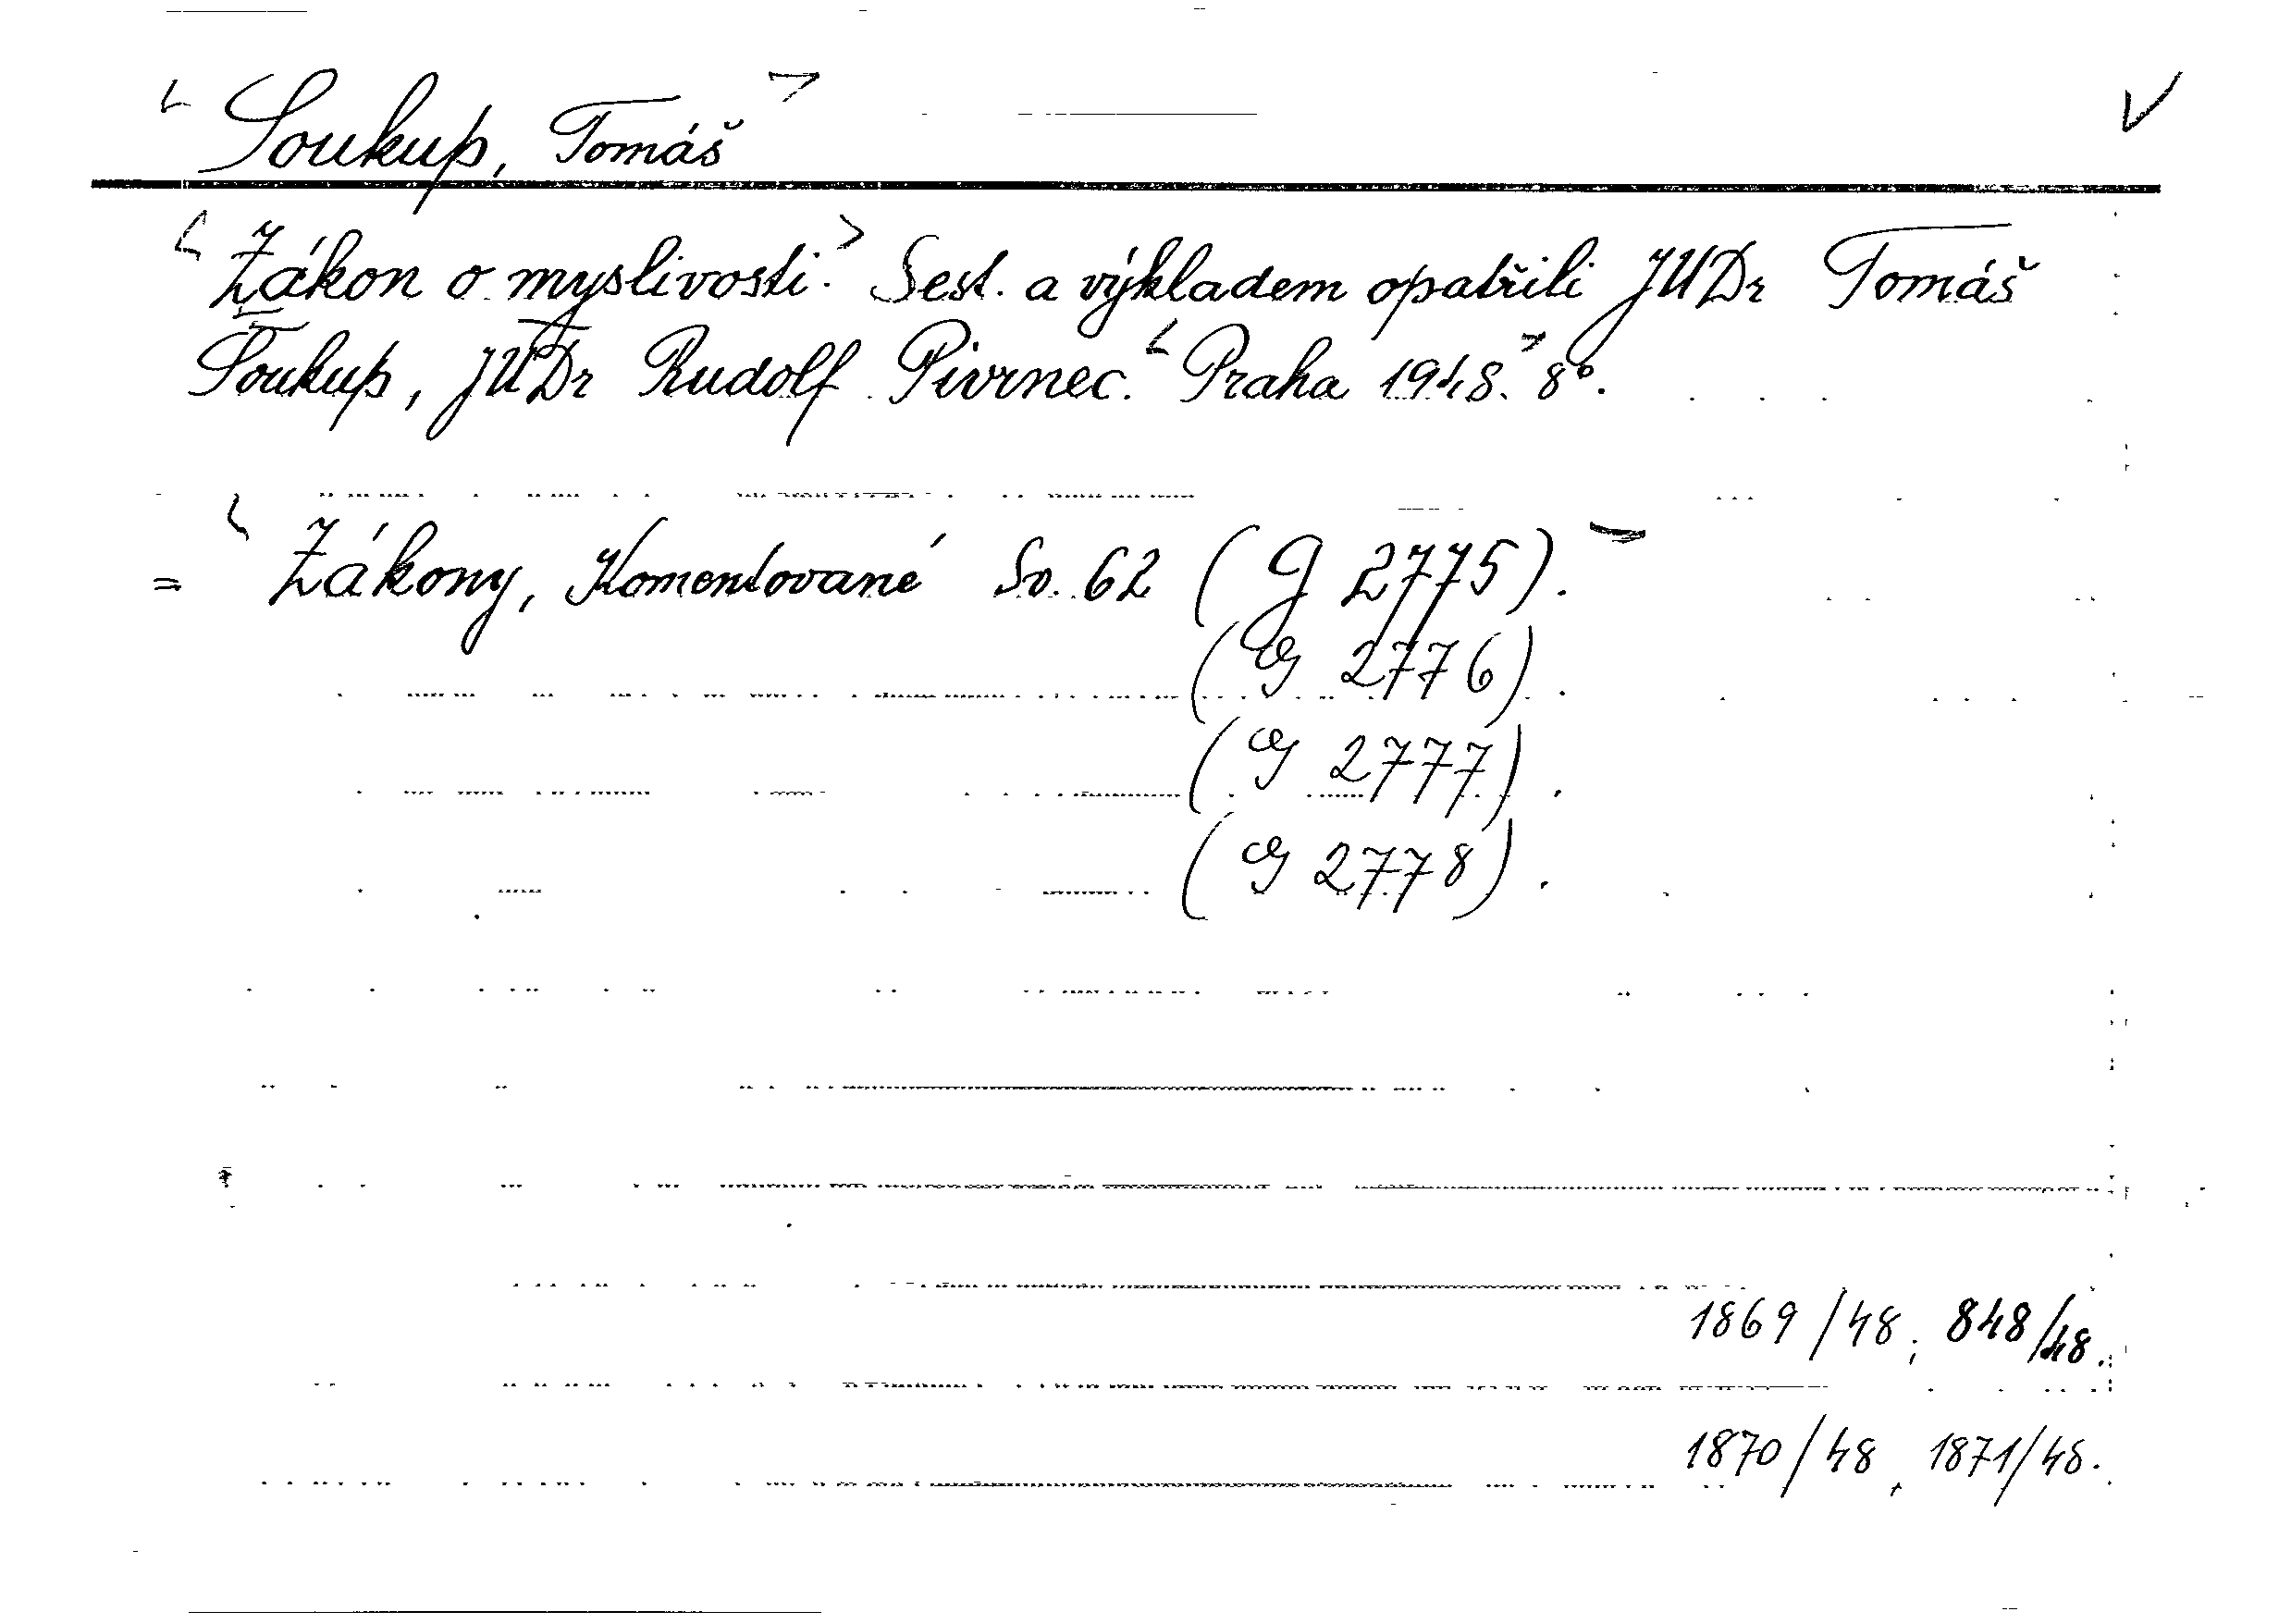 Soukup, Tomáš
Zákon o myslivosti. Sest. a výkladem opatřili JUDr Tomáš
Soukup, JUDr Rudolf Pivrnec. Praha 1948. 8°.
= Zákony, Komentované Sv. 62 (G 2775).
(G 2776).
(G 2777).
(G 2778).
1869/48, 848/48.
1870/48, 1871/48.